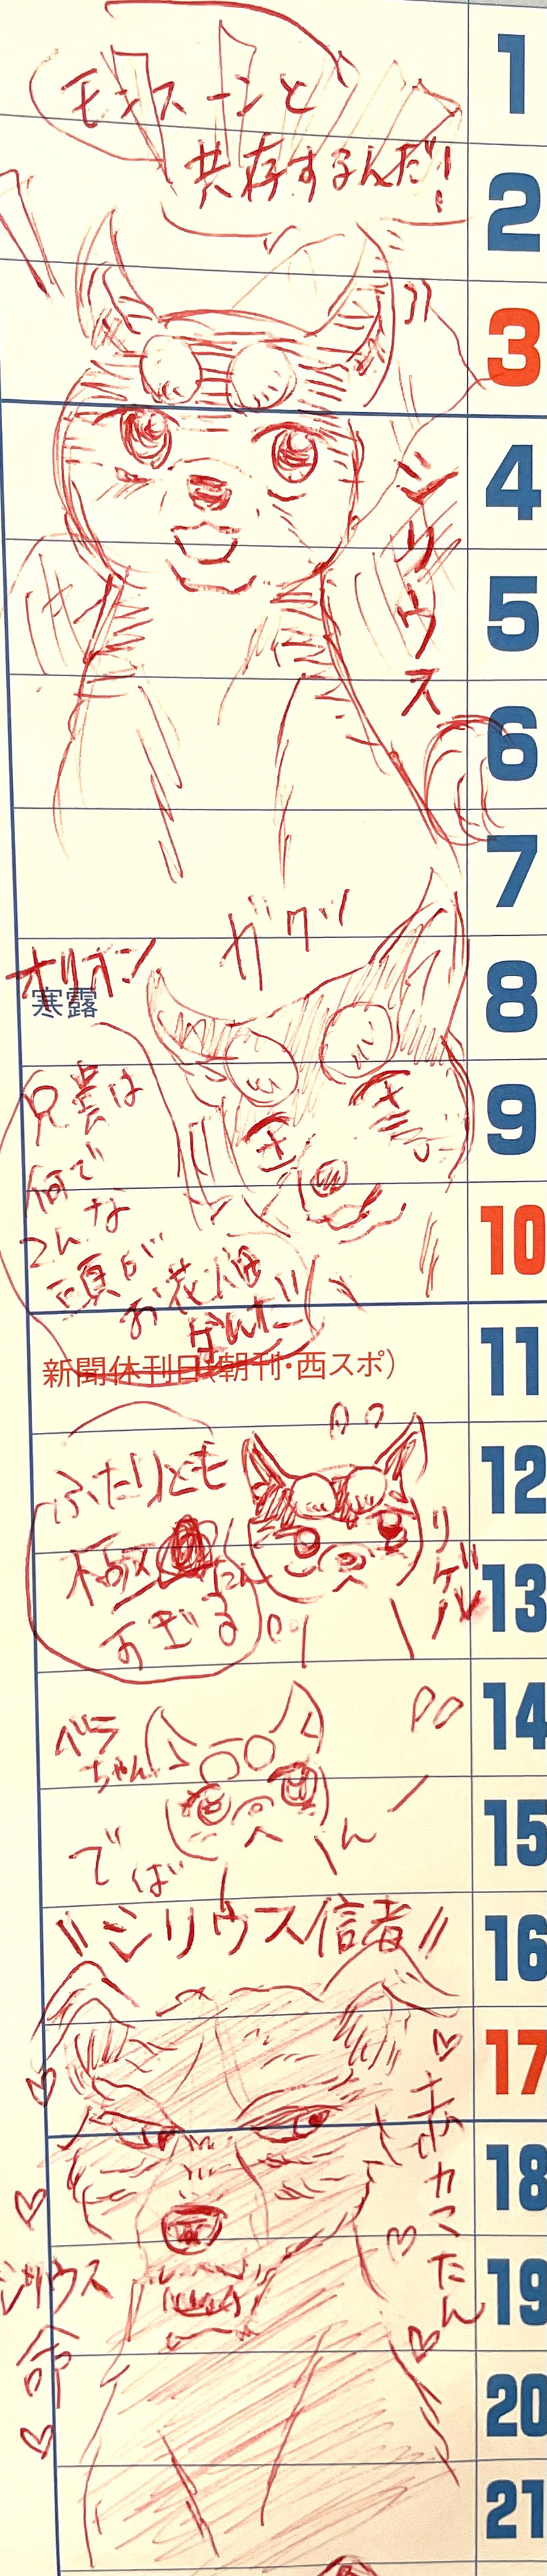 モンスーンと
共存するんだ!
1
2
3
4
シリウス
5
6
7
ガクッ
オリオン
寒露
8
兄貴は
何で
こんな
頭が
お花畑
なんだ!!
9
10
新聞休刊日(朝刊・西スポ)
11
ふたりとも
極
すぎる
リゲル
12
13
ベラ
ちゃん
でば
ん
14
15
"シリウス信者"
16
17
カマたん
シリウス
命
18
19
20
21